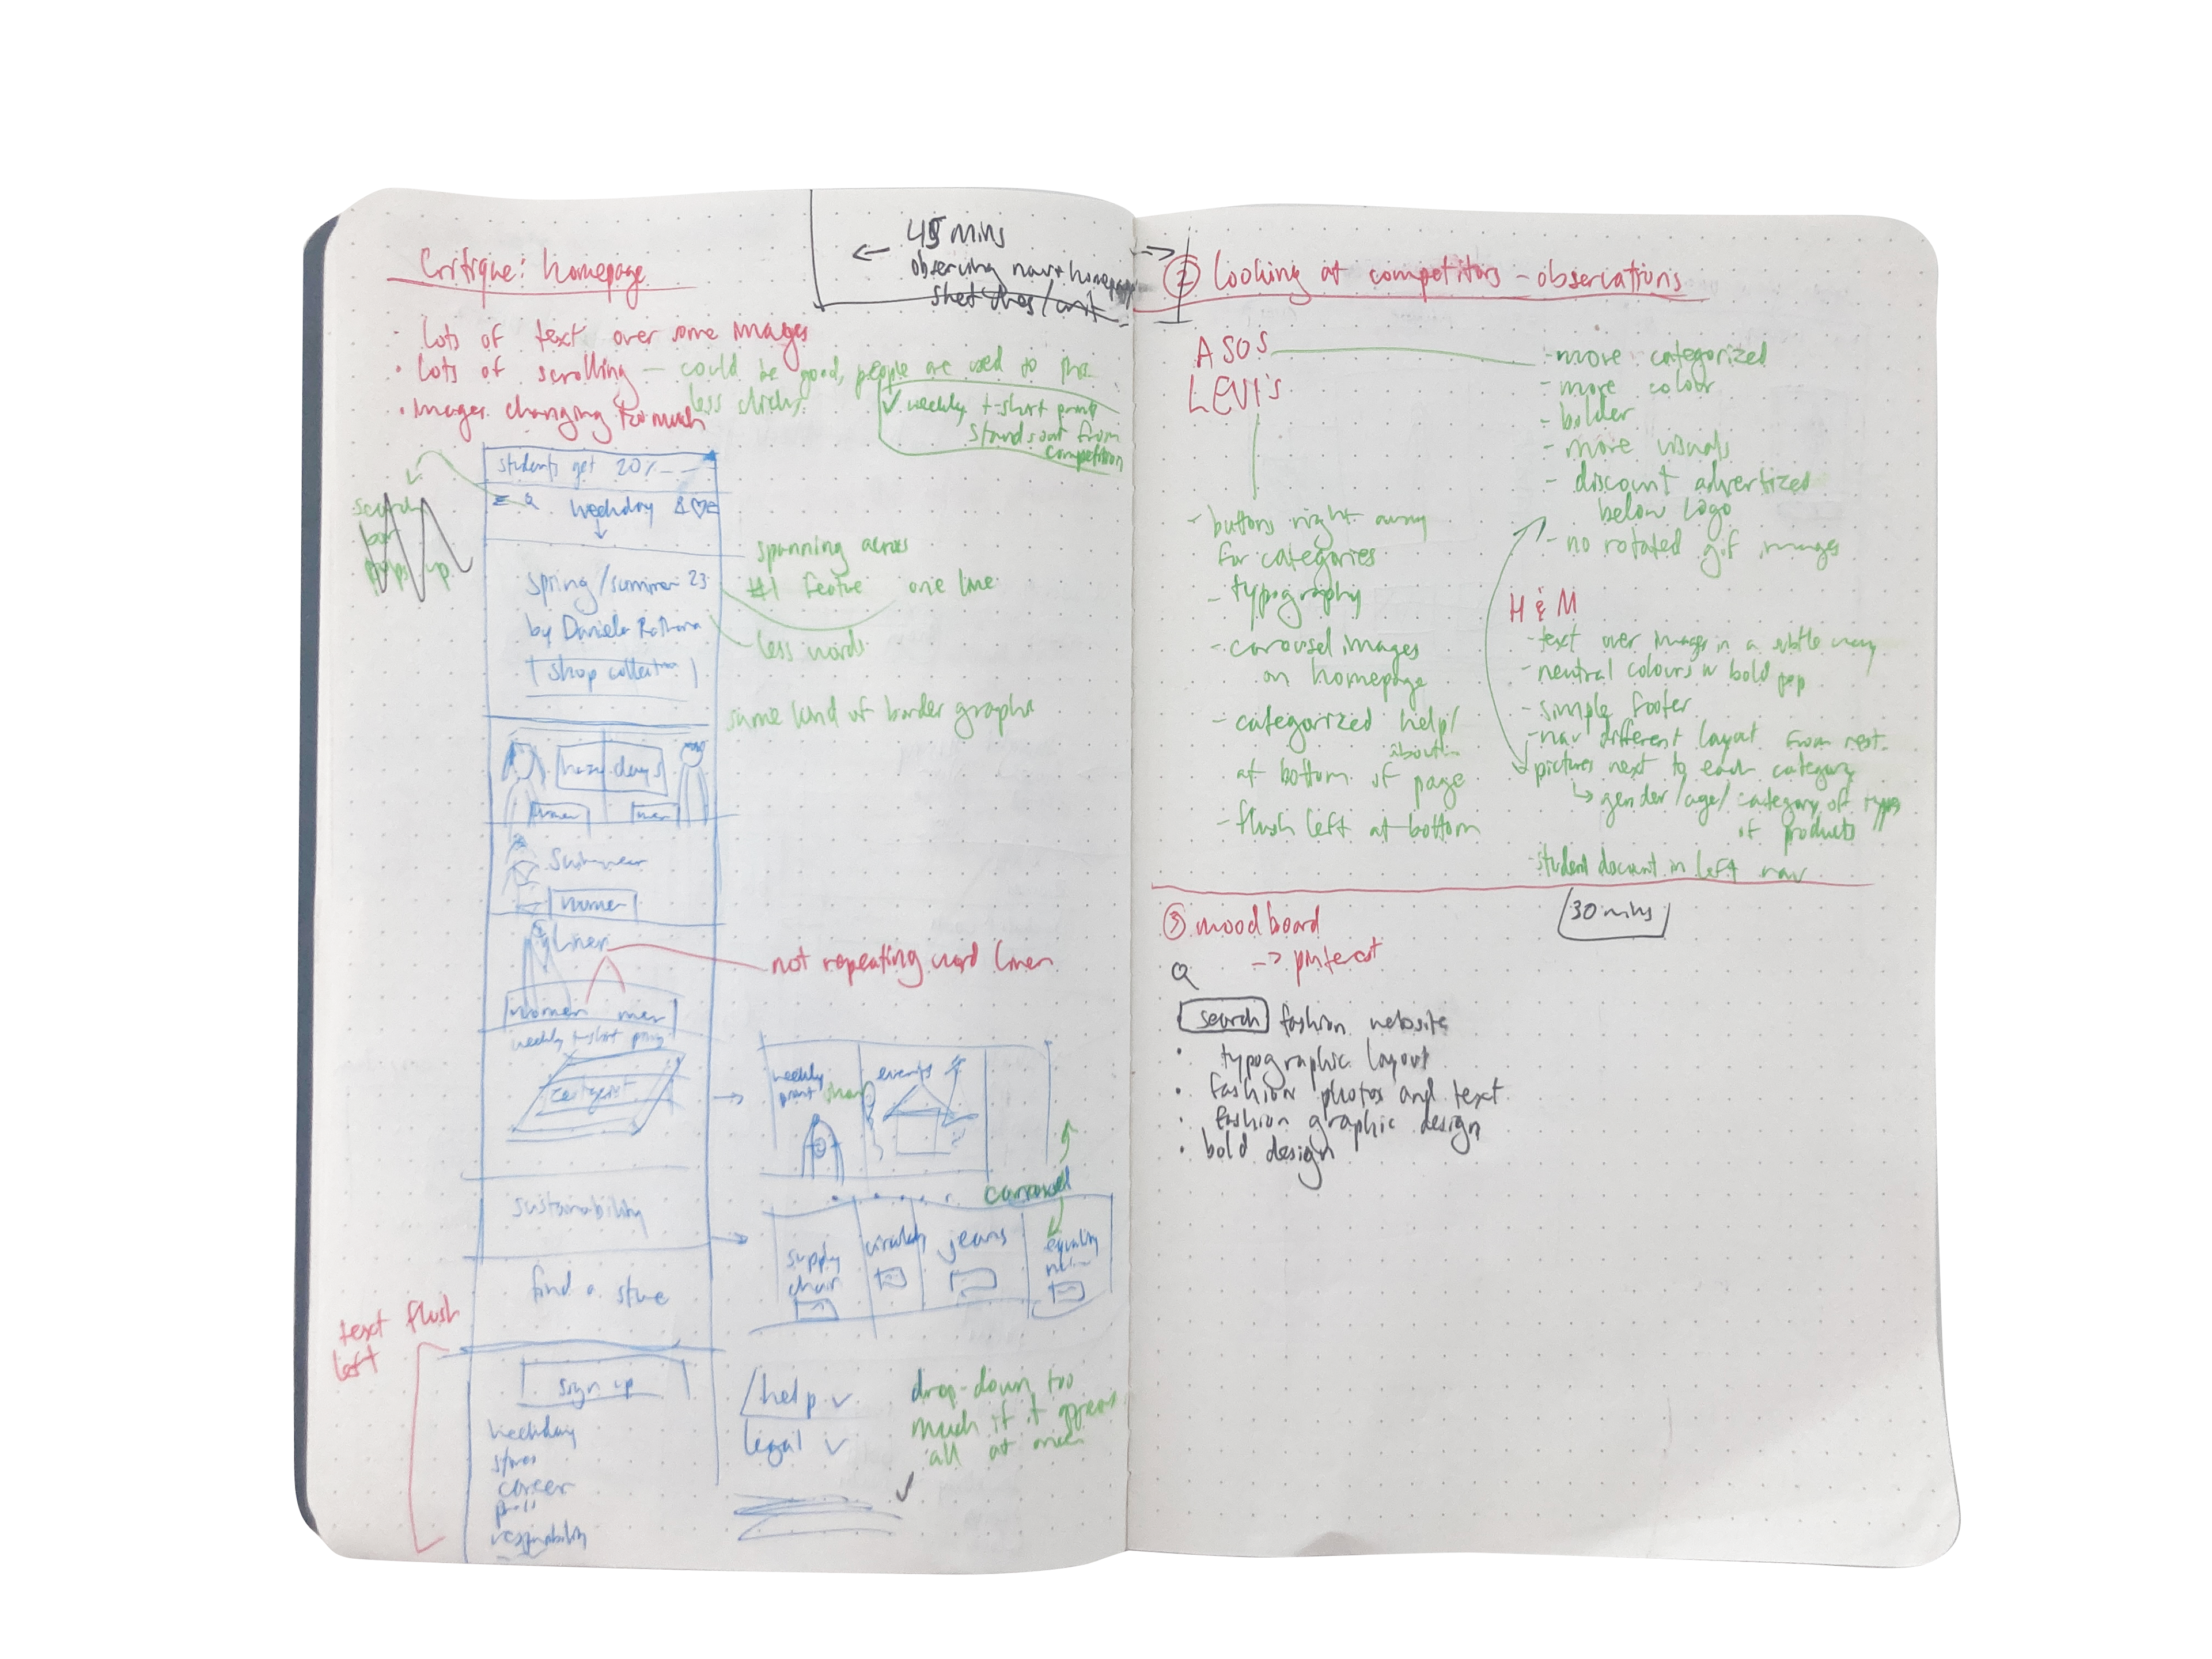 Critique: homepage
45 mins
observing nav + homepage
- lots of text over some images
• lots of scrolling — could be good, people are used to this
less clicks
• images changing too much
✓ weekly t-shirt print
stands out from
competition
students get 20%
search
bar
pops up
weekday
spring/summer 23
by Daniela
shop collection
spanning across
#1 feature one line
less words
same kind of border graphic
days
women men
women
linen
not repeating word linen
women men
weekly t-shirt print
weekly
print
events
carousel
sustainability
supply
chain
jeans
equality
find a store
text flush
left
sign up
weekday
stores
career
press
responsibility
help ✓
legal ✓
drop-down too
much if it appears
all at once
② Looking at competitors - observations
ASOS
- more categorized
- more colour
- bolder
- more visuals
- discount advertized
below logo
- no rotated gif images
LEVI's
- buttons right away
for categories
- typography
- carousel images
on homepage
- categorized help/
about
at bottom of page
- flush left at bottom
H & M
- text over images in a subtle way
- neutral colours w bold pop
- simple footer
- nav different layout from rest
pictures next to each category
↳ gender/age/category of types
of products
- student discount in left nav
③ moodboard
30 mins
-> pinterest
search fashion website
• typographic layout
• fashion photos and text
• fashion graphic design
• bold design